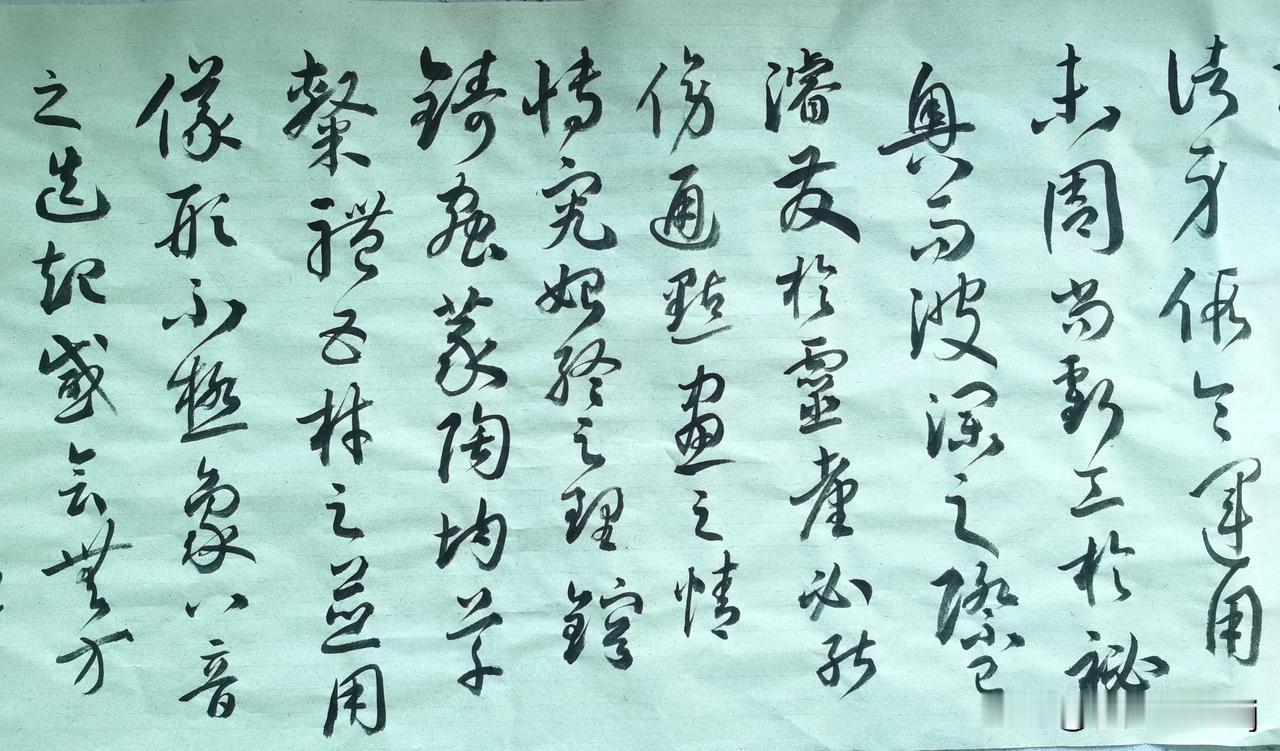 諸身假令運用
未周尚虧工於祕
奧而波瀾之際已
濬發於靈臺必能
傍通點畫之情
博究始終之理鎔
鑄蟲篆陶均草
隸體五材之並用
儀形不極象八音
之迭起感會無方